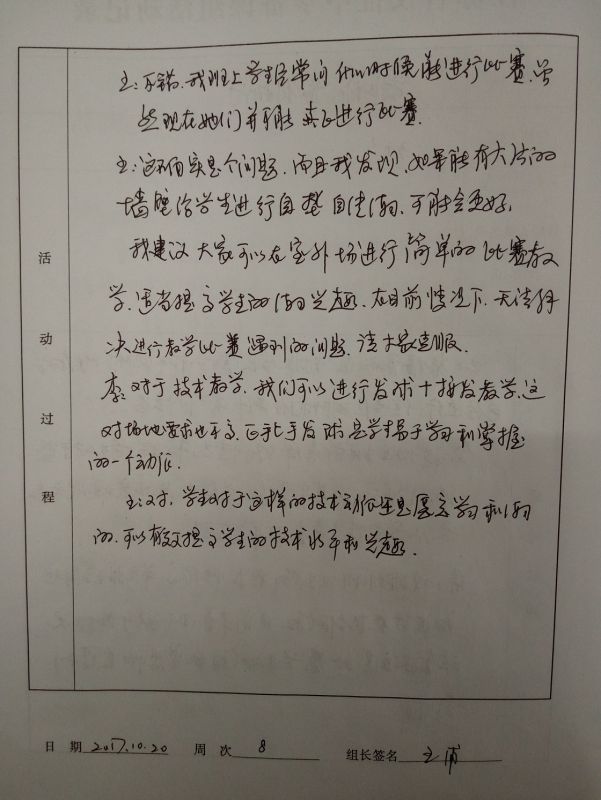 王:不错,我班上学生经常问什么时候能进行比赛,尽
管现在她们并不能真正进行比赛.
王:这确实是个问题,而且我发现,如果能有大片的
墙壁给学生进行自垫自练,可能会更好,
我建议大家可以在室外场进行简单的比赛教
学,适当提高学生的兴趣,在目前情况下,无法解
决进行教学比赛遇到的问题,请大家克服.
李:对于技术教学,我们可以进行发球+接发教学,这
对场地要求也不高,正手上手发球是学生易于学习和掌握
的一个动作.
王:对,学生对于这样的技术动作还是愿意学习和练习
的,可以有效提高学生的技术水平和兴趣.
活
动
过
程
日 期 2017.10.20 周 次 8 组长签名 王